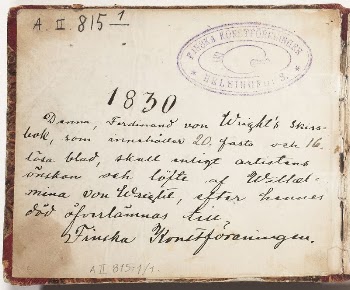 A II 815 1
FINSKA KONSTFÖRENINGEN
HELSINGFORS.
1830
Denna, Ferdinand von Wright's skiss-
bok, som innehåller 20. fasta och 16.
lösa blad, skall enligt artistens
önskan och löfte af Wilhel-
mina von Wright, efter hennes
död öfverlämnas till
Finska Konstföreningen.
A II 815:1/1